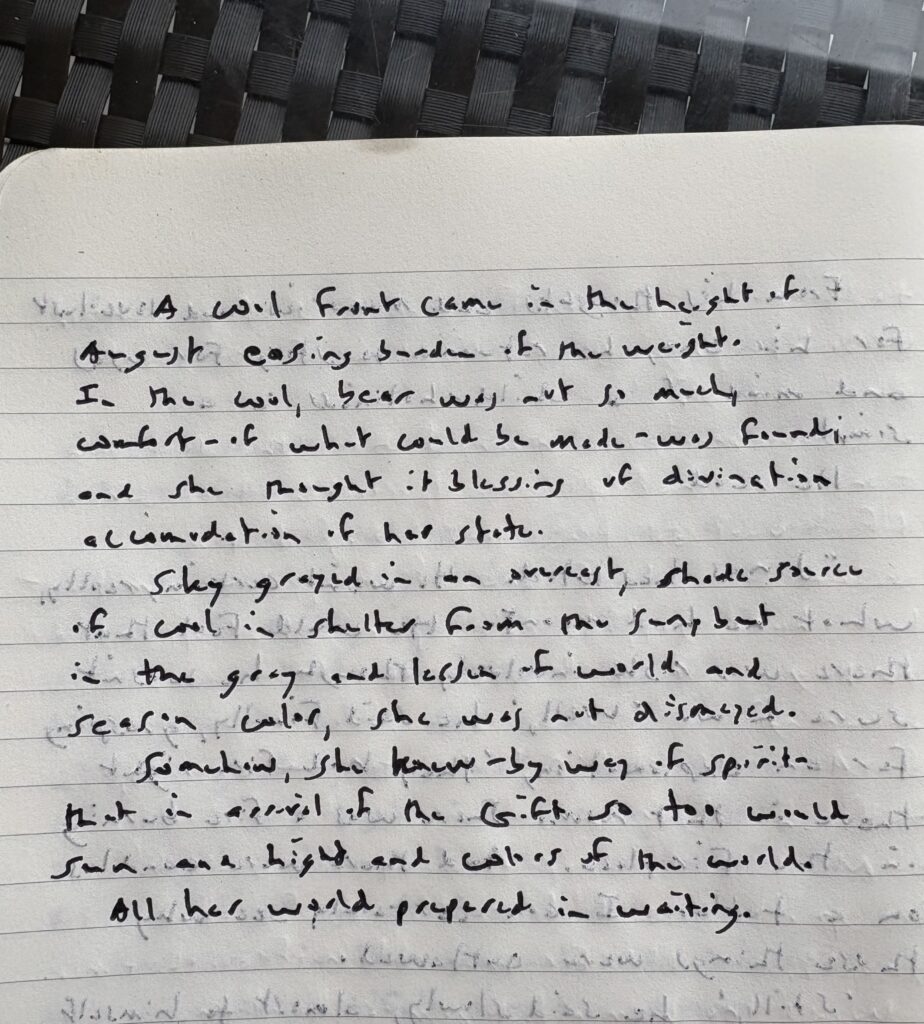 A cool front came in the height of
August easing burden of the weight.
In the cool, bear was not so much,
comfort-of what could be made-was found;
and she thought it blessing of divination
accomodation of her state.
Sky grayed in an overcast, shade source
of cool in shelter from the sun, but
in the gray and lessen of world and
season color, she was not dismayed.
Somehow, she knew-by way of spirit-
that in arrival of the Gift so too would
sun and light and colors of the world.
All her world prepared in waiting.